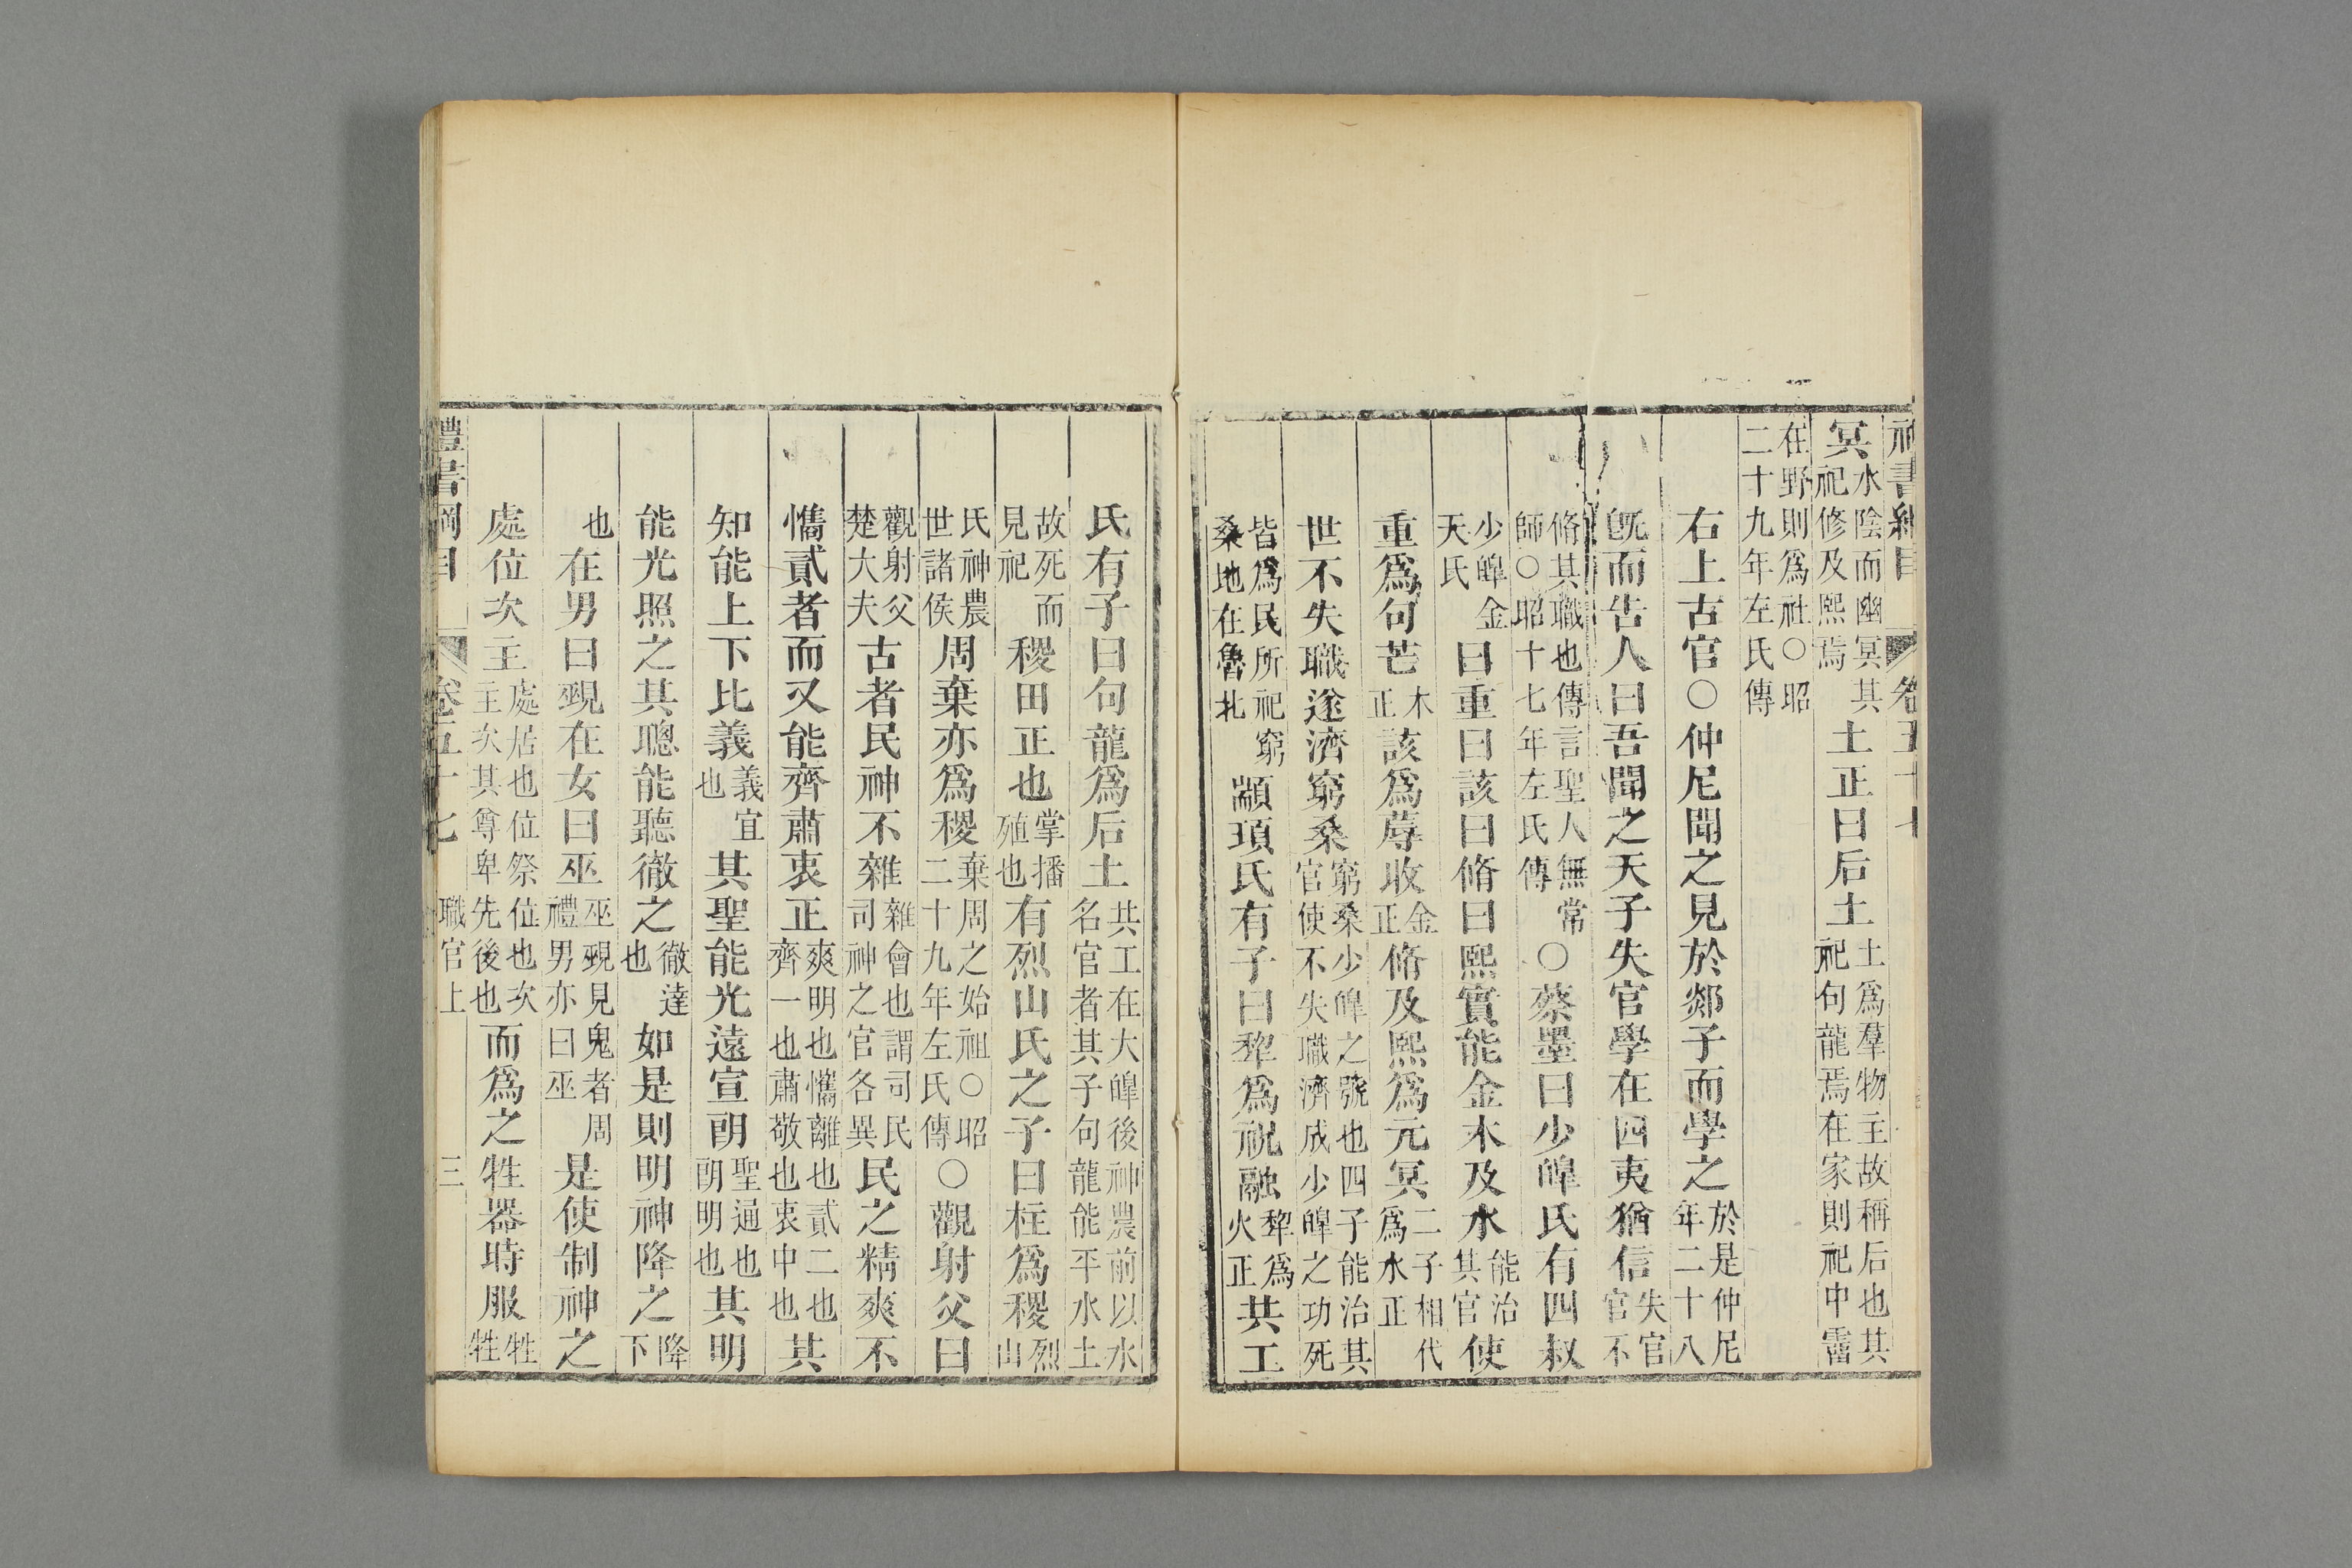 冥水陰而幽冥其祀修及熙焉土正曰后土土爲羣物主故稱后也其祀句龍焉在家則祀中霤
在野則爲社〇昭二十九年左氏傳
右上古官〇仲尼聞之見於郯子而學之於是仲尼年二十八
旣而告人曰吾聞之天子失官學在四夷猶信失官官不
脩其職也傳言聖人無常師〇昭十七年左氏傳〇蔡墨曰少皥氏有四叔
少皥金天氏曰重曰該曰脩曰熙實能金木及水能治其官使
重爲句芒木正該爲蓐收金正脩及熙爲元冥二子相代爲水正
世不失職遂濟窮桑窮桑少皥之號也四子能治其官使不失職濟成少皥之功死
皆爲民所祀窮桑地在魯北顓頊氏有子曰犂爲祝融犂爲火正共工
氏有子曰句龍爲后土共工在大皥後神農前以水名官者其子句龍能平水土
故死而見祀稷田正也掌播殖也有烈山氏之子曰柱爲稷烈山
氏神農世諸侯周棄亦爲稷棄周之始祖〇昭二十九年左氏傳〇觀射父曰
觀射父楚大夫古者民神不雜雜會也謂司民司神之官各異民之精爽不
㩗貳者而又能齊肅衷正爽明也㩗離也貳二也齊一也肅敬也衷中也其
知能上下比義義宜也其聖能光遠宣朗聖通也朗明也其明
能光照之其聰能聽徹之徹達也如是則明神降之降下
也在男曰覡在女曰巫巫覡見鬼者周禮男亦曰巫是使制神之
處位次主處居也位祭位也次主次其尊卑先後也而爲之牲器時服牲牲
禮書綱目 卷五十七 職官上 三